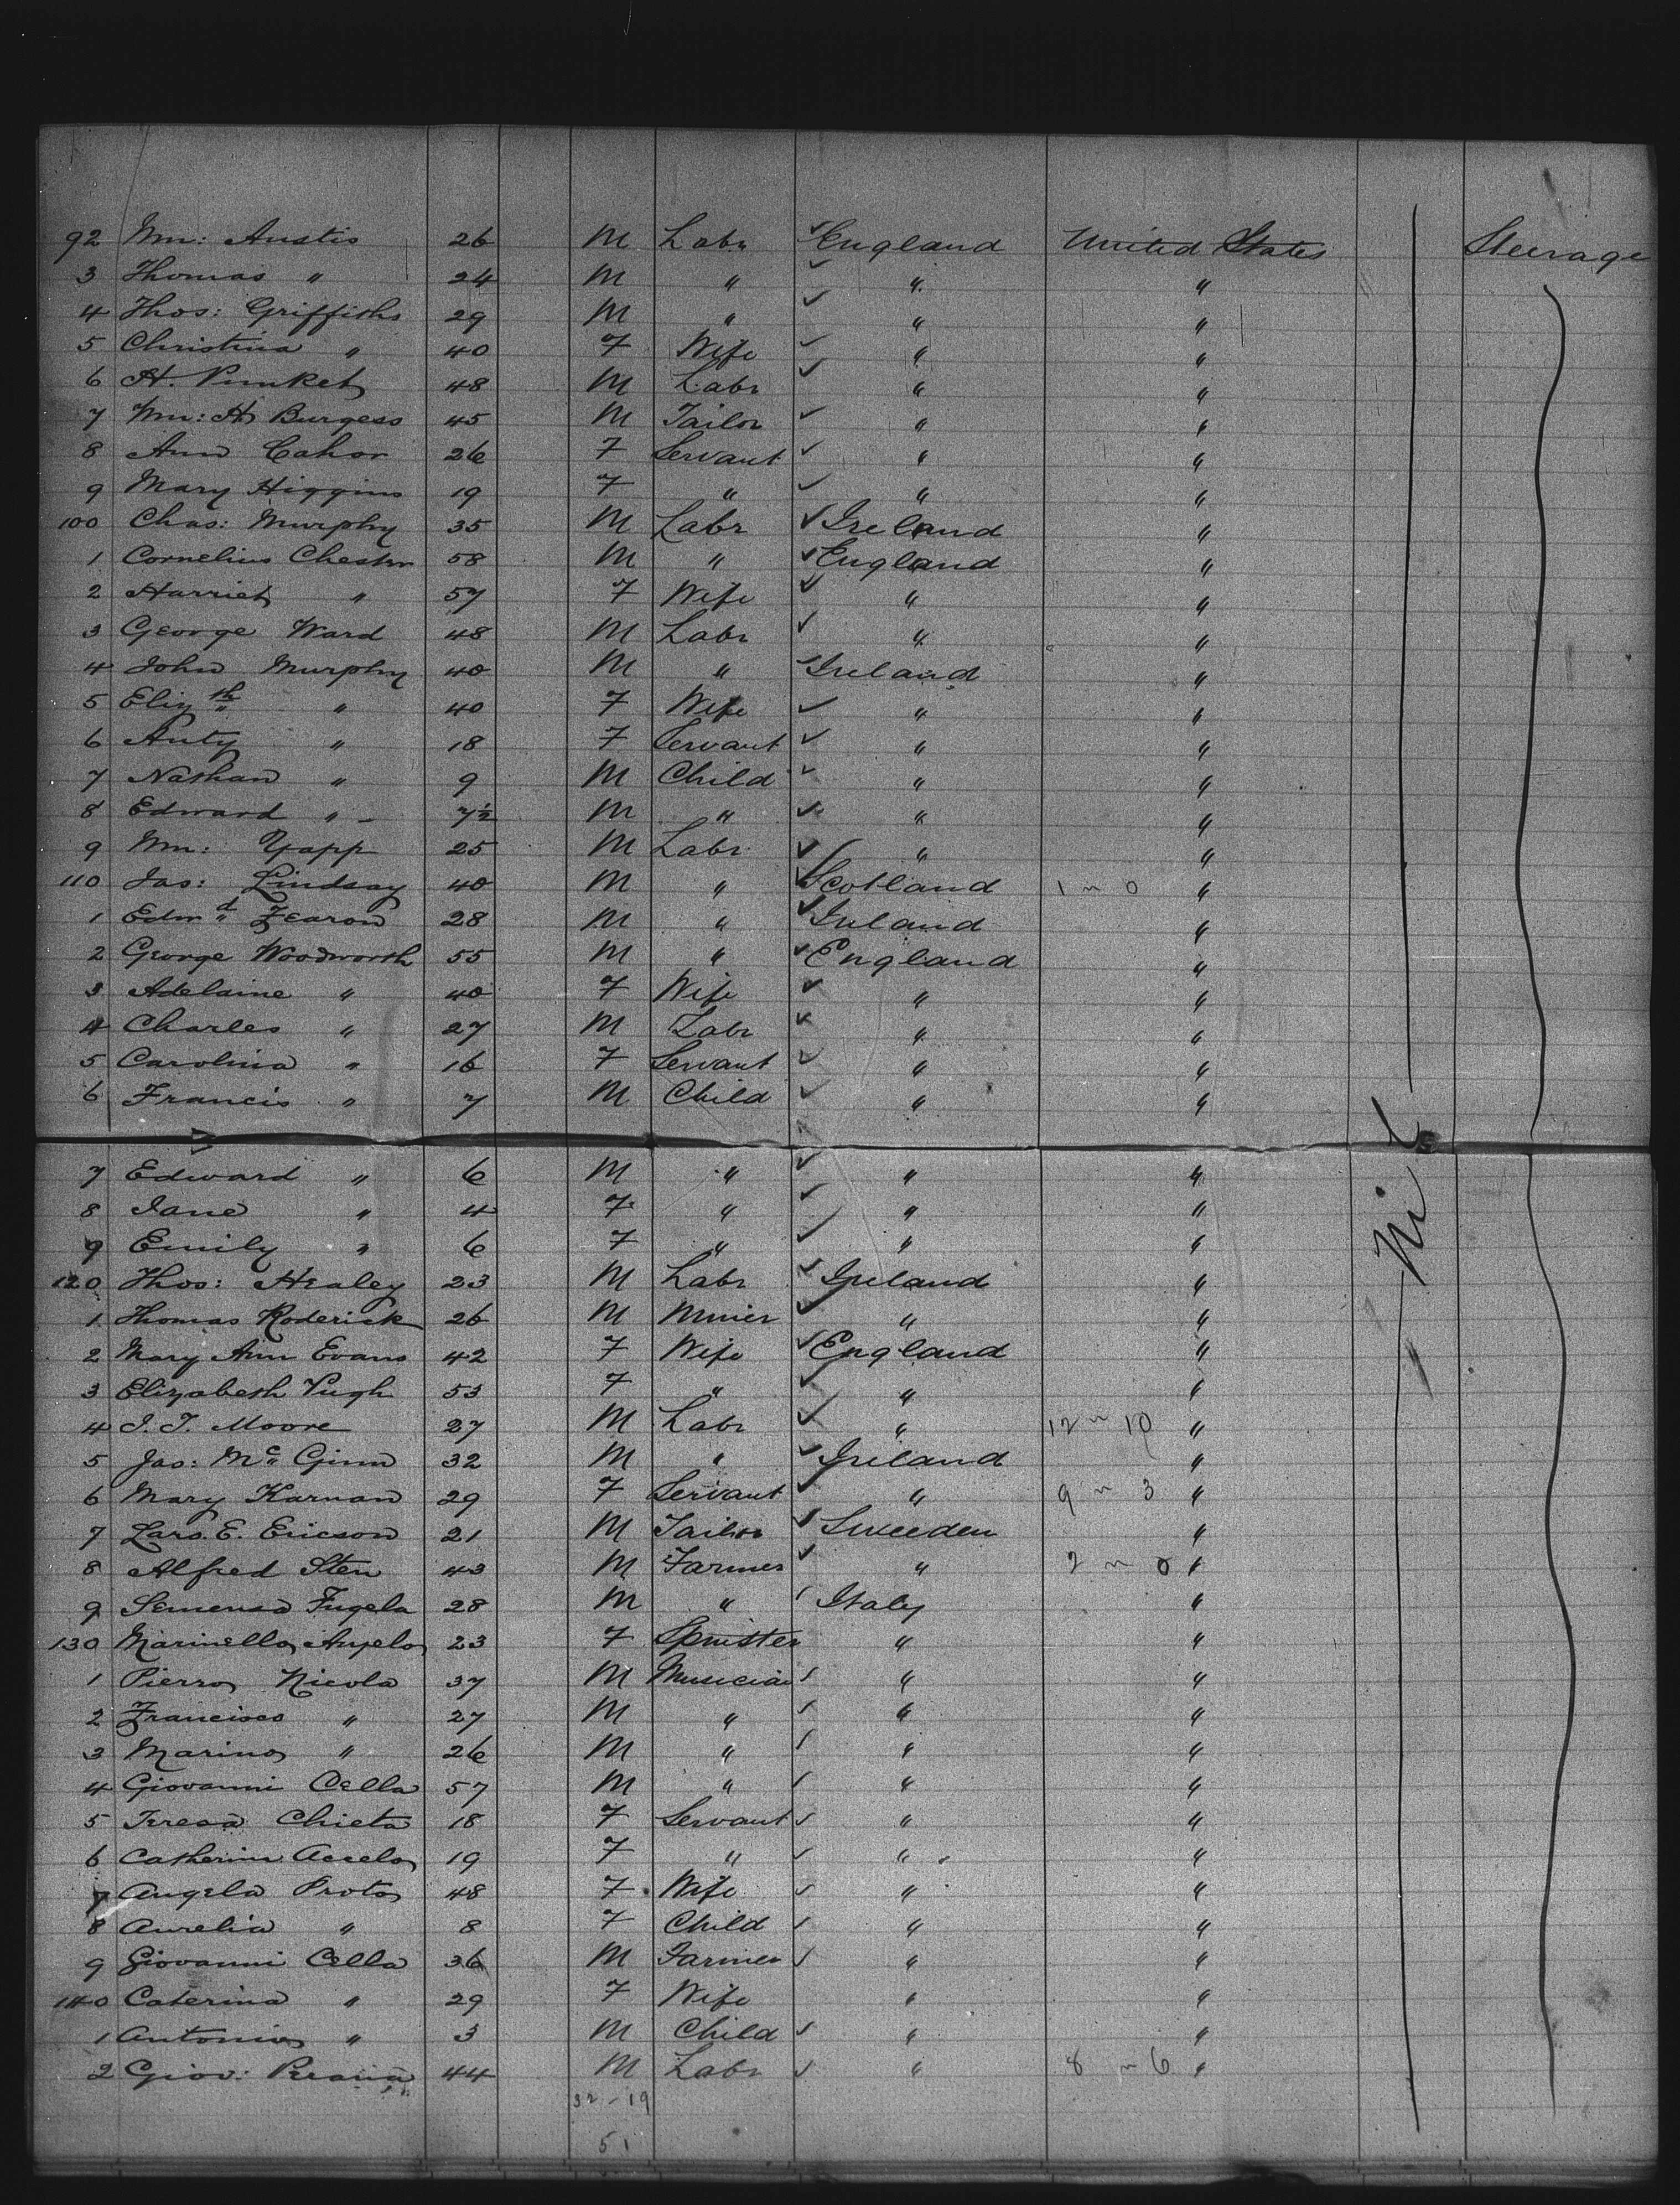 92 Wm: Anstis 26 M Labr England United States Steerage
3 Thomas " 24 M " " "
4 Thos: Griffiths 29 M " " "
5 Christina " 40 F Wife " "
6 H. Plunket 48 M Labr " "
7 Wm: H. Burgess 45 M Tailor " "
8 Ann Cahor 26 F Servant " "
9 Mary Higgins 19 F " " "
100 Chas: Murphy 35 M Labr Ireland "
1 Cornelius Chester 58 M " England "
2 Harriet " 57 F Wife " "
3 George Ward 48 M Labr " "
4 John Murphy 40 M " Ireland "
5 Eliz th " 40 F Wife " "
6 Anty " 18 F Servant " "
7 Nathan " 9 M Child " "
8 Edward " 7½ M " " "
9 Wm: Yapp 25 M Labr " "
110 Jas: Lindsay 40 M " Scotland 1 ~ 0 "
1 Edwd Fearon 28 M " Ireland "
2 George Woodworth 55 M " England "
3 Adelaine " 40 F Wife " "
4 Charles " 27 M Labr " "
5 Carolina " 16 F Servant " "
6 Francis " 7 M Child " "
7 Edward " 6 M " " " Nil
8 Jane " 4 F " " "
9 Emily " 6 F " " "
120 Thos: Healey 23 M Labr Ireland "
1 Thomas Roderick 26 M Miner " "
2 Mary Ann Evans 42 F Wife England "
3 Elizabeth Pugh 53 F " " "
4 J. T. Moore 27 M Labr " 12 ~ 10 "
5 Jas: Mc Ginn 32 M " Ireland "
6 Mary Karnan 29 F Servant " 9 ~ 3 "
7 Lars. E. Ericson 21 M Tailor Sweeden "
8 Alfred Sten 43 M Farmer " 2 ~ 0 "
9 Semensa Fugela 28 M " Italy "
130 Marinello Angelo 23 F Spinster " "
1 Pierro Nicola 37 M Musician " "
2 Francisco " 27 M " " "
3 Marino " 26 M " " "
4 Giovanni Cella 57 M " " "
5 Teresa Chieta 18 F Servant " "
6 Catherine Accelo 19 F " " "
7 Angela Proto 48 F Wife " "
8 Aurelia " 8 F Child " "
9 Giovanni Cella 36 M Farmer " "
140 Caterina " 29 F Wife " "
1 Antonio " 3 M Child " "
2 Giov: 44 M Labr " 8 ~ 6 "
32 - 19
51